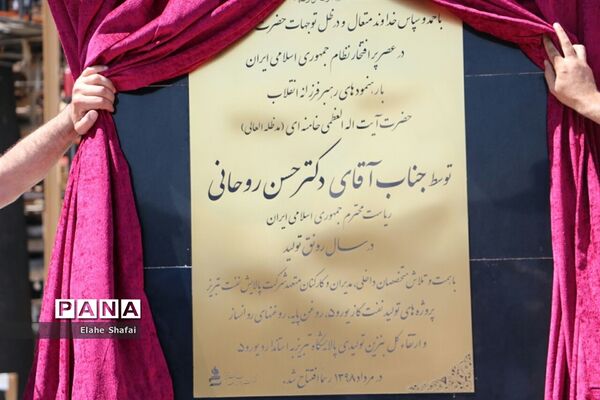 با حمد و سپاس خداوند متعال و در ظل توجهات حضرت
در عصر پر افتخار نظام جمهوری اسلامی ایران
با رهنمودهای رهبر فرزانه انقلاب
حضرت آیت اله العظمی خامنه ای (مدظله العالی)
توسط جناب آقای دکتر حسن روحانی
ریاست محترم جمهوری اسلامی ایران
در سال رونق تولید
با همت و تلاش متخصصان داخلی، مدیران و کارکنان متعهد شرکت پالایش نفت تبریز
پروژه های تولید نفت گاز یورو ۵، روغن پایه، روغنهای روانساز
و ارتقاء کل بنزین تولیدی پالایشگاه تبریز به استاندارد یورو ۵
در مرداد ۱۳۹۸ رسما افتتاح شد.
PANA
Elahe Shafai